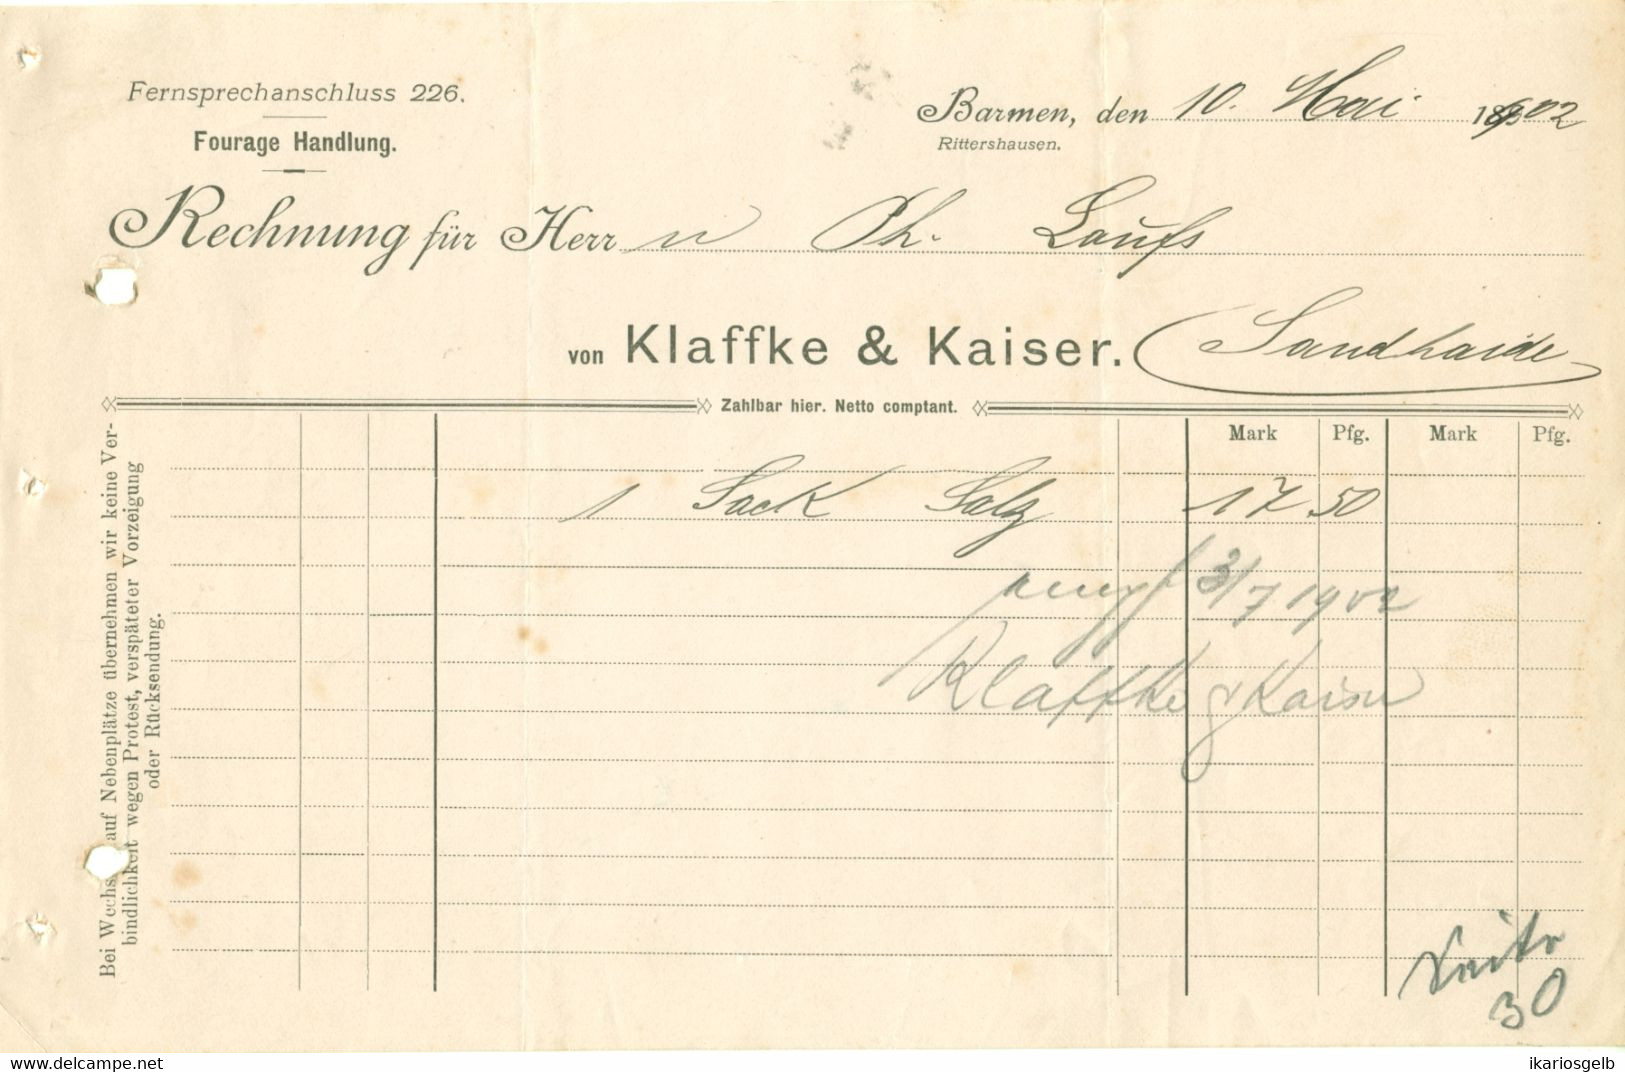 Fernsprechanschluss 226.
Fourage Handlung.
Barmen, den 10. Mai 1902
Rittershausen.
Rechnung für Herrn Ph. Laufs
von Klaffke & Kaiser. Sandhaide
Zahlbar hier. Netto comptant.
Mark Pfg. Mark Pfg.
1 Sack Salz 17.50
3/7 1902
Klaffke & Kaiser
30
Bei Wechs. auf Nebenplätze übernehmen wir keine Ver-
bindlichkeit wegen Protest, verspäteter Vorzeigung
oder Rücksendung.
www.delcampe.net
ikariosgelb